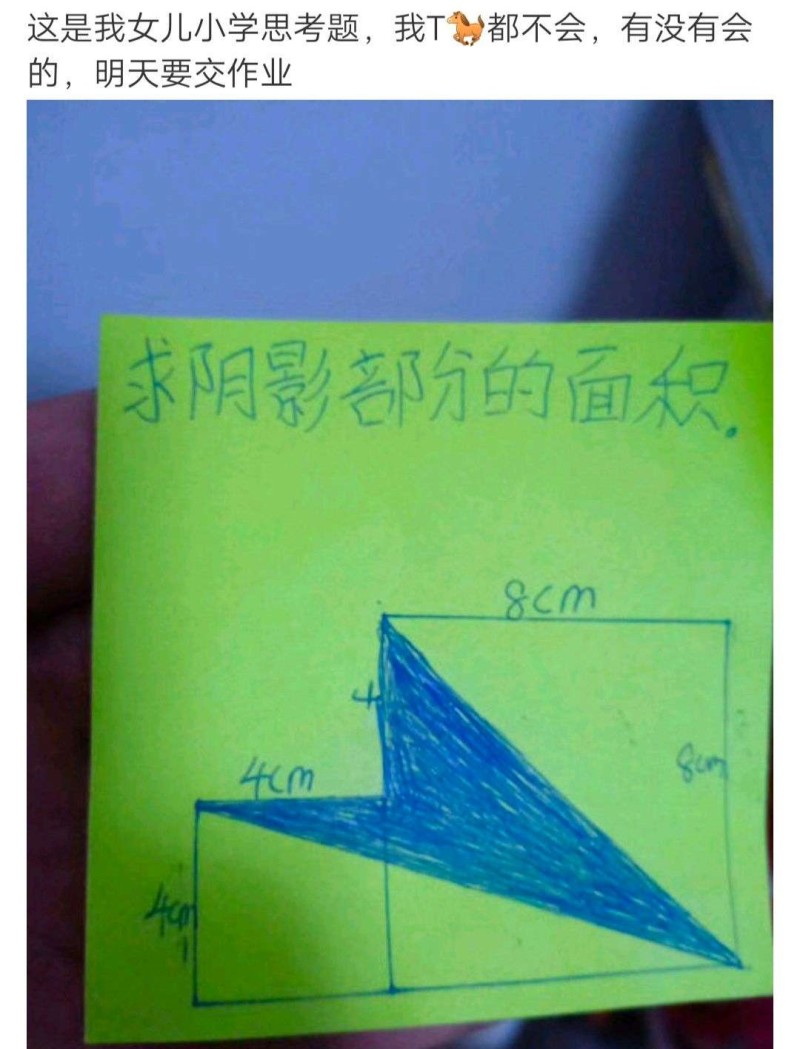 这是我女儿小学思考题，我T🐎都不会，有没有会
的，明天要交作业
求阴影部分的面积.
8cm
4
4cm
8cm
4cm